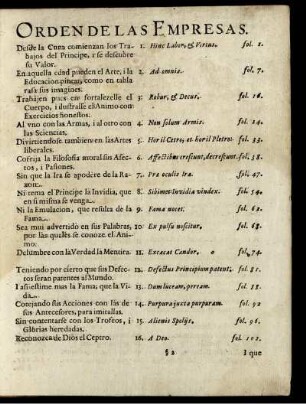 ORDEN DE LAS EMPRESAS.
Desde la Cuna comienzan los Trabajos del Principe, i se descubre su Valor. 1. Hinc Labor, & Virtus. fol. 1.
En aquella edad pueden el Arte, i la Educacion, pincel como en tabla rasa sus imagines. 2. Ad omnia. fol. 7.
Trabajen para fortalezelle el Cuerpo, i ilustralle el Animo con Exercicios honestos. 3. Robur, & Decus. fol. 16.
Al vno con las Armas, i al otro con las Sciencias. 4. Non solum Armis. fol. 24.
Divirtiendole tambien en las Artes liberales. fol. 33.
Corrija la Filosofia moral sus Afectos, i Pasiones. fol. 38.
Sin que la Ira se apodere de la Razon. 7. Præ oculis Ira. fol. 47.
Ni tema el Principe la Invidia, que en si misma se venga. 8. Sibimet Invidia vindex. fol. 54.
Ni la Emulacion, que resulta de la Fama. 9. Fama nocet. fol. 62.
Sea mui advertido en sus Palabras, por las quales se conoze el Animo. 10. Ex pulsu noscitur. fol. 68.
Deslumbre con la Verdad la Mentira. 11. Excæcat Candor. fol. 74.
Teniendo por cierto que sus Defectos seran patentes al Mundo. fol. 81.
I assi estime mas la Fama, que la Vida. fol. 88.
Cotejando sus Acciones con las de sus Antecesores, para imitallas. 14. Purpura juxta purpuram. fol. 92
Sin contentarse con los Trofeos, i Glorias heredadas. 15. Alienis Spolijs. fol. 96.
Reconozca de Dios el Ceptro. 16. A Deo. fol. 102.
§ 2 I que